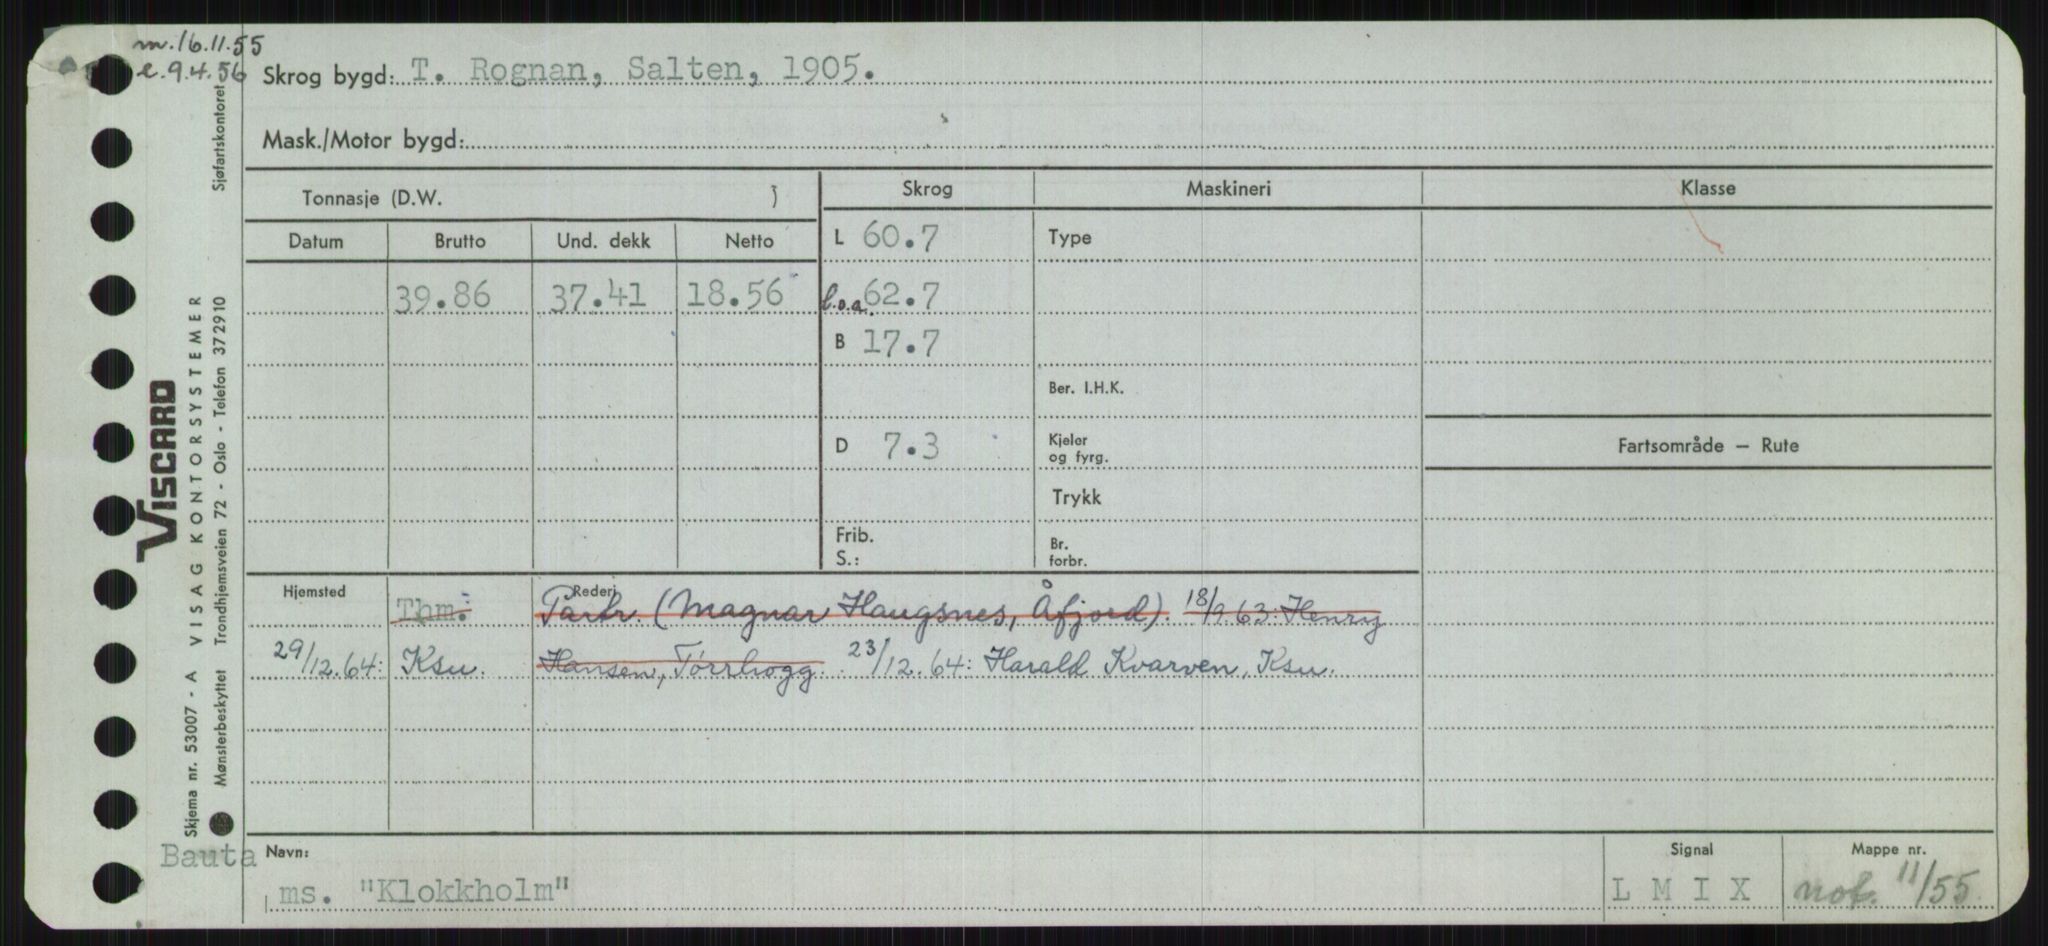 m.16.11.55
e.9.4.56
Skrog bygd: T. Rognan, Salten, 1905.
Mask./Motor bygd:
Tonnasje (D.W. )
Skrog
Maskineri
Klasse
Datum
Brutto
Und. dekk
Netto
L 60.7
Type
39.86
37.41
18.56
l.o.a. 62.7
B 17.7
Ber. I.H.K.
D 7.3
Kjeler
og fyrg.
Fartsområde — Rute
Trykk
Frib.
S.:
Br.
forbr.
Hjemsted
Rederi
Thm.
Partr. (Magnar Haugsnes, Åfjord). 18/9.63: Henry
29/12.64: Ksu.
Hansen, Tørrhogg. 23/12.64: Harald Kvarven, Ksu.
Bauta
Navn:
ms. "Klokkholm"
Signal
L M I X
Mappe nr.
not. 11/55
VISCARD
Skjema nr. 53007 - A VISAG KONTORSYSTEMER
Mønsterbeskyttet Trondhjemsveien 72 - Oslo - Telefon 372910 Sjøfartskontoret